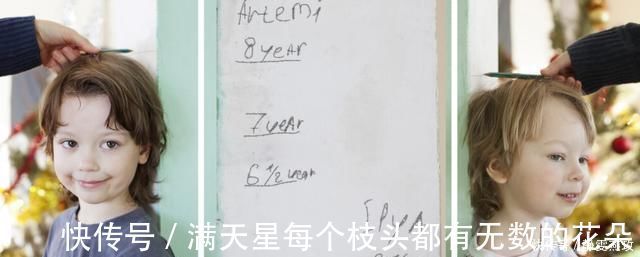 Artemi
8 year
7 year
6 1/2 year
快传号 / 满天星每个枝头都有无数的花朵